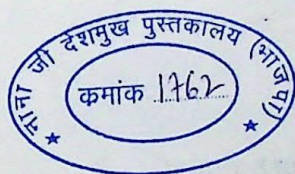 नाना जी देशमुख पुस्तकालय (भाजपा)
कमांक 1762